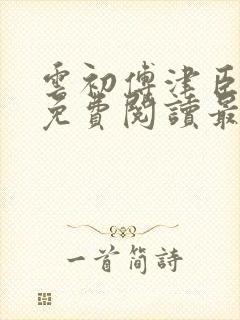 雲初傅津臣
免費閱讀最
一首簡詩